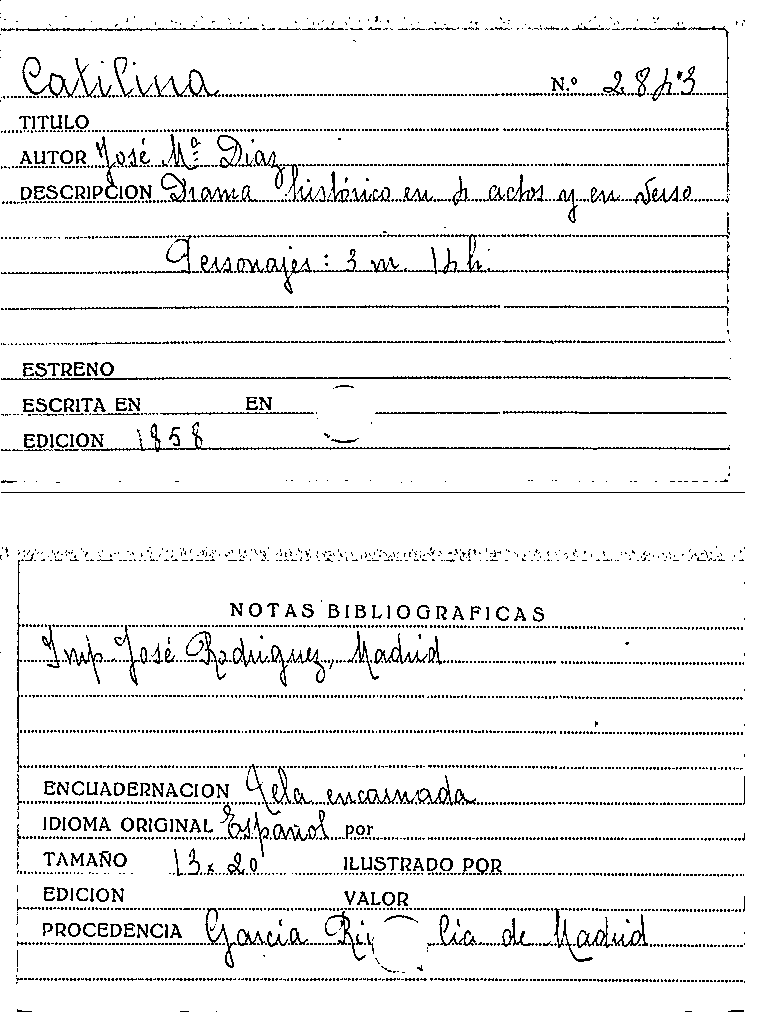 Catilina N.º 2843
TITULO
AUTOR José Mª Diaz
DESCRIPCION Drama histórico en 4 actos y en verso
Personajes: 3 m. 14 h.
ESTRENO
ESCRITA EN EN
EDICION 1858
NOTAS BIBLIOGRAFICAS
Imp. José Rodriguez, Madrid
ENCUADERNACION Tela encarnada
IDIOMA ORIGINAL Español por
TAMAÑO 13 x 20 ILUSTRADO POR
EDICION VALOR
PROCEDENCIA García Cia de Madrid